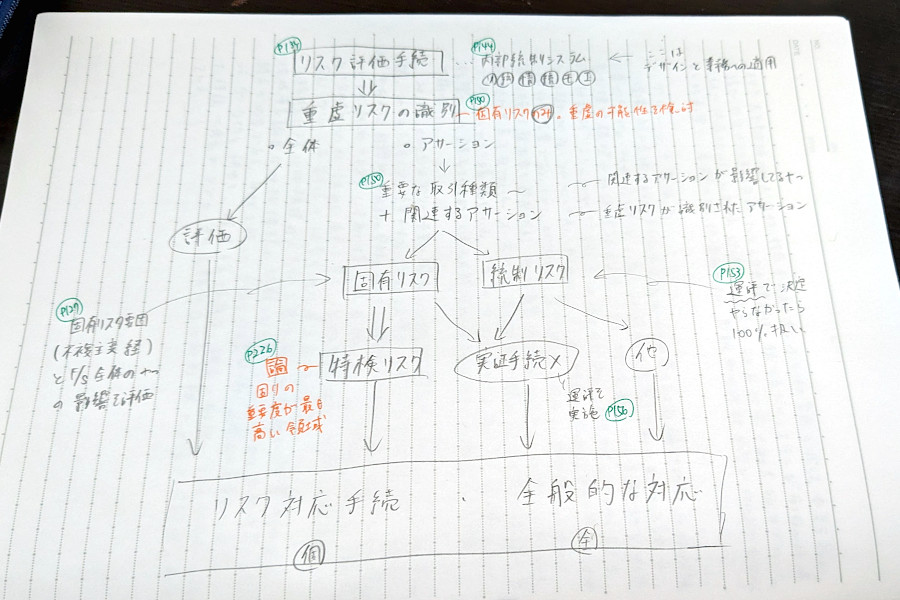 P134
リスク評価手続
P144
内部統制システム
ここは
デザインと業務への適用
重虚リスクの識別
P150
固有リスクのみ。重虚の可能性を検討
全体
アサーション
P150
重要な取引種類
関連するアサーションが影響してるやつ
+ 関連するアサーション
重虚リスクが識別されたアサーション
評価
固有リスク
統制リスク
P153
運評で決定
やらなかったら
100%扱い
P127
固有リスク要因
(不複主変経)
とF/S全体のやつ
の影響で評価
P226
論
固リの
重要度が最も
高い領域
特検リスク
実証手続×
運評を
実施
P156
他
リスク対応手続 ・ 全般的な対応
個
全